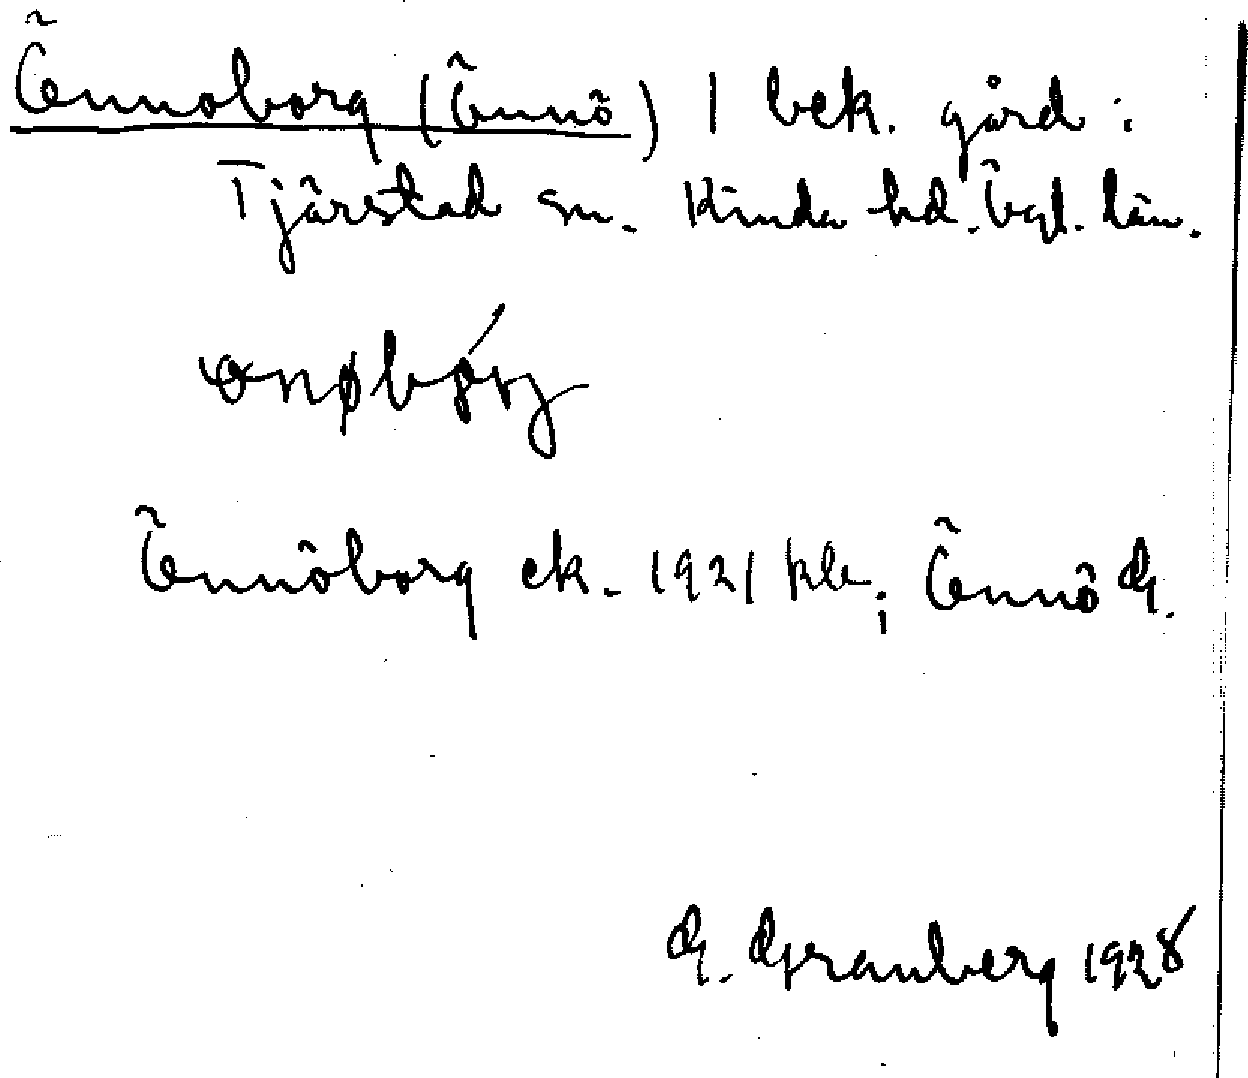 Önnoborg (Önnö) 1 bek. gård i
Tjärstad sn. Kinda hd. Ögl. län.
Önnöborg ek. 1921 kll; Önnö G.
G. Granberg 1928